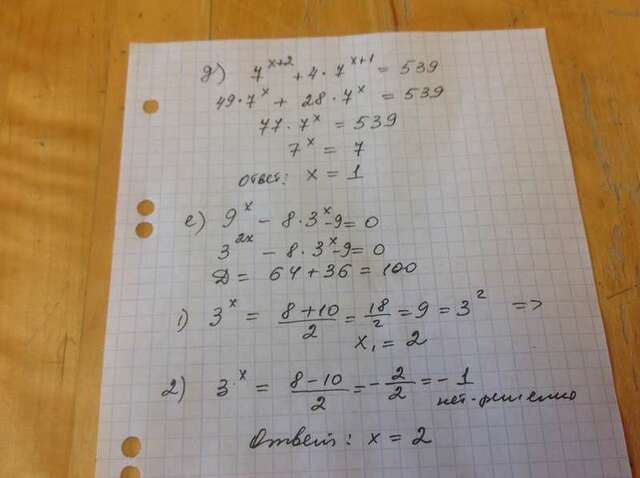 д) 7^(x+2) + 4·7^(x+1) = 539
49·7^x + 28·7^x = 539
77·7^x = 539
7^x = 7
ответ: x = 1
е) 9^x - 8·3^x - 9 = 0
3^(2x) - 8·3^x - 9 = 0
D = 64 + 36 = 100
1) 3^x = (8+10)/2 = 18/2 = 9 = 3^2 =>
x₁ = 2
2) 3^x = (8-10)/2 = -2/2 = -1
нет решения
Ответ: x = 2